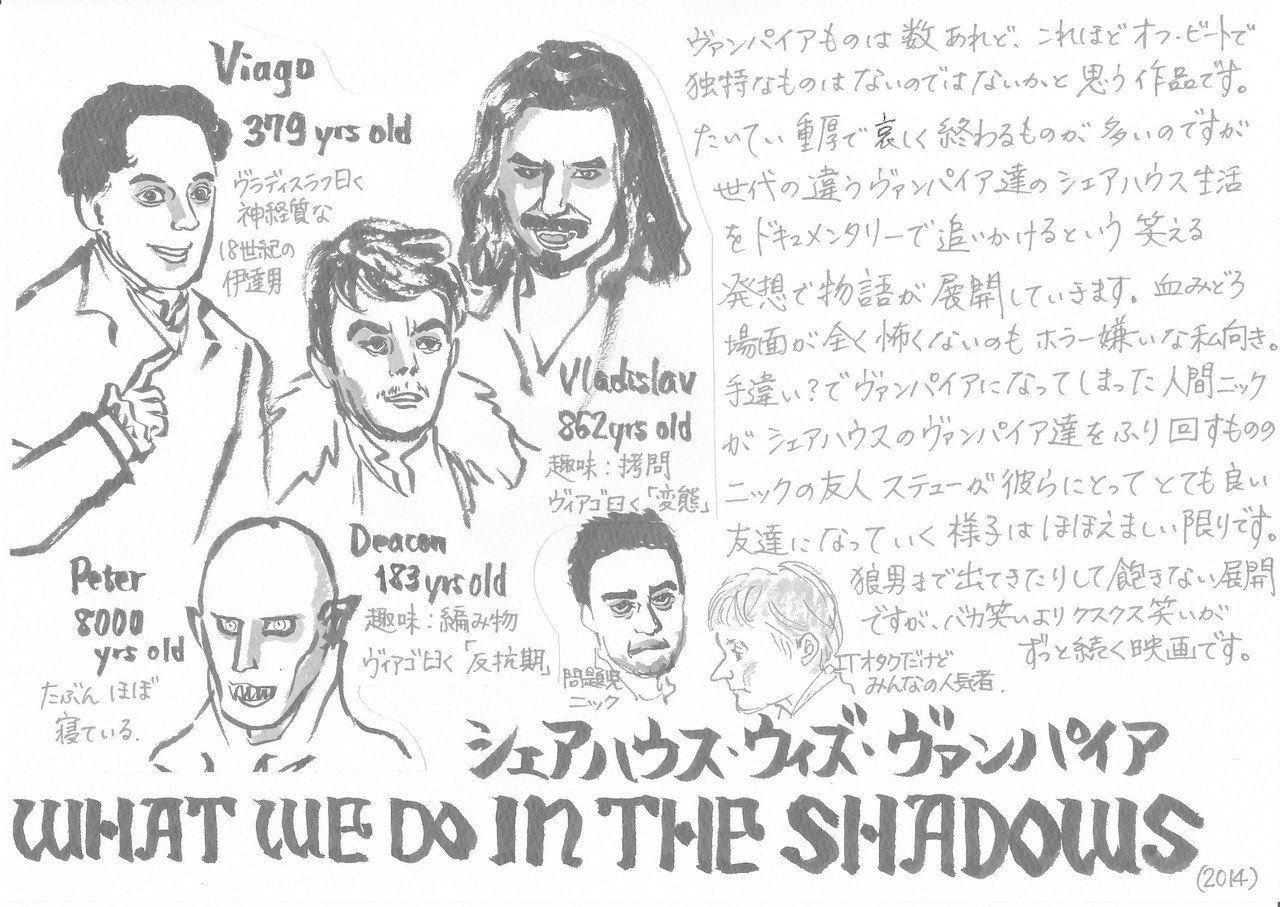 Viago
379 yrs old
ヴラディスラフ曰く
神経質な
18世紀の
伊達男
Vladislav
862 yrs old
趣味：拷問
ヴィアゴ曰く「変態」
Deacon
183 yrs old
趣味：編み物
ヴィアゴ曰く「反抗期」
Peter
8000
yrs old
たぶん ほぼ
寝ている.
問題児
ニック
ITオタクだけど
みんなの人気者.
ヴァンパイアものは数あれど、これほどオフ・ビートで
独特なものはないのではないかと思う作品です。
たいてい重厚で哀しく終わるものが多いのですが
世代の違うヴァンパイア達のシェアハウス生活
をドキュメンタリーで追いかけるという笑える
発想で物語が展開していきます。血みどろ
場面が全く怖くないのもホラー嫌いな私向き。
手違い？でヴァンパイアになってしまった人間ニック
がシェアハウスのヴァンパイア達をふり回すものの
ニックの友人ステューが彼らにとってとても良い
友達になっていく様子はほほえましい限りです。
狼男まで出てきたりして飽きない展開
ですが、バカ笑いよりクスクス笑いが
ずっと続く映画です。
シェアハウス・ウィズ・ヴァンパイア
WHAT WE DO IN THE SHADOWS
(2014)